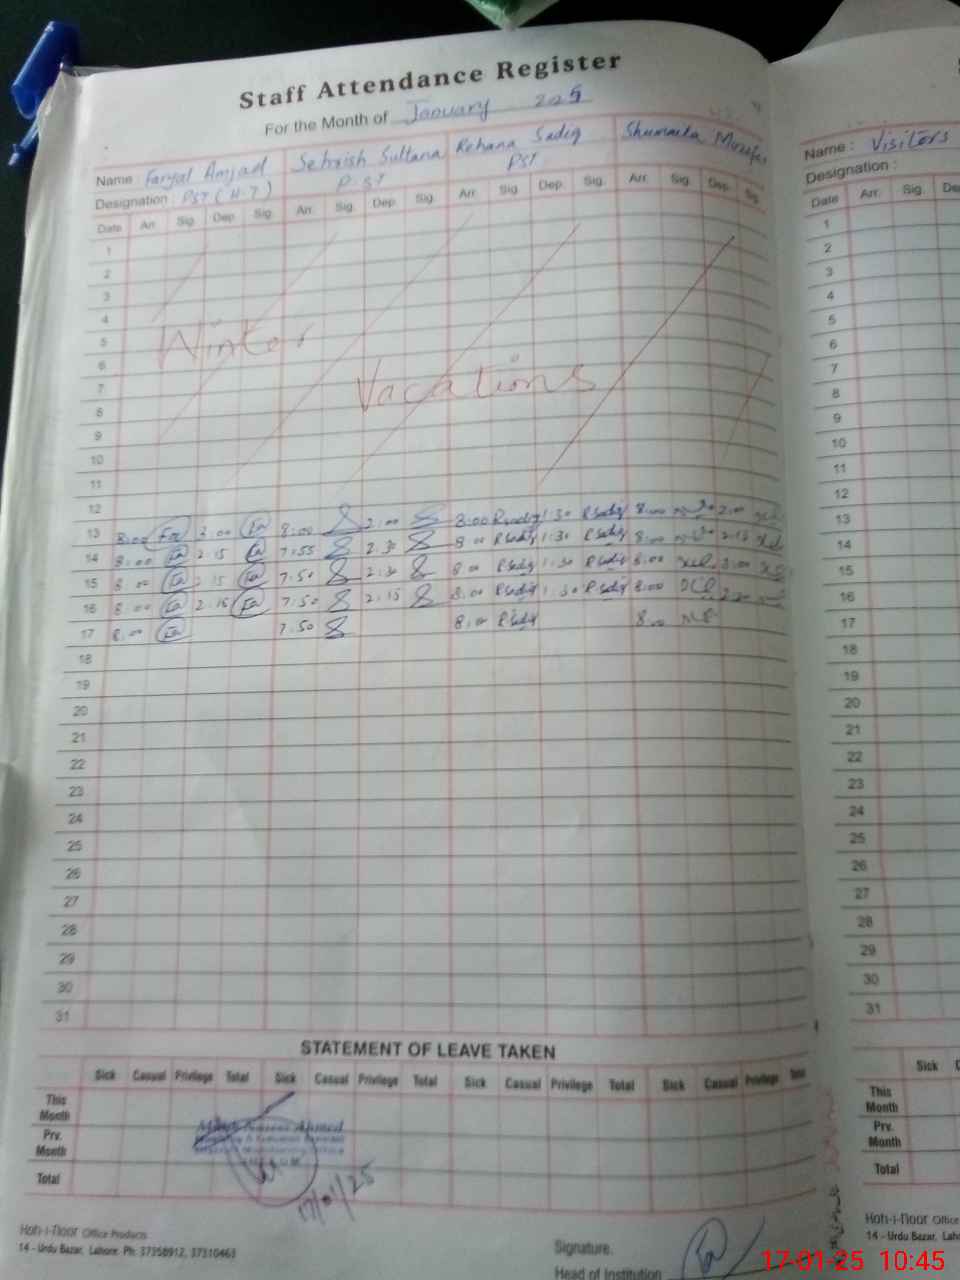 Staff Attendance Register
For the Month of January 2025
Name : Faryal Amjad Sehrish Sultana Rehana Sadiq Shumaila
Designation : PST (H.T) P.ST PST
Date Arr. Sig. Dep. Sig. Arr. Sig. Dep. Sig. Arr. Sig. Dep. Sig. Arr. Sig. Dep. Sig.
1
2
3
4
5
Winter
6
7
Vacations
8
9
10
11
12
13 8:00 3:00 8:00 2:00 8:00 RSadiq 1:30 RSadiq 8:00 2:00
14 8:00 2:15 7:55 2:30 8:00 RSadiq 1:30 RSadiq 8:00 2:15
15 8:00 2:15 7:50 2:30 8:00 RSadiq 1:30 RSadiq 8:00 2:00
16 8:00 2:15 7:50 2:15 8:00 RSadiq 1:30 RSadiq 8:00
17 8:00 7:50 8:00 RSadiq 8:00
18
19
20
21
22
23
24
25
26
27
28
29
30
31
STATEMENT OF LEAVE TAKEN
Sick Casual Privilege Total Sick Casual Privilege Total Sick Casual Privilege Total Sick Casual Privilege Total
This Month
Prv. Month
Total
Ahmed
17/01/25
Koh-i-Noor Office Products
14 - Urdu Bazar, Lahore. Ph: 37358912, 37310463
Signature.
Head of Institution
Name : Visitors
Designation :
Date Arr. Sig.
1
2
3
4
5
6
7
8
9
10
11
12
13
14
15
16
17
18
19
20
21
22
23
24
25
26
27
28
29
30
31
Sick
This Month
Prv. Month
Total
Koh-i-Noor Office
14 - Urdu Bazar,
17-01-25 10:45